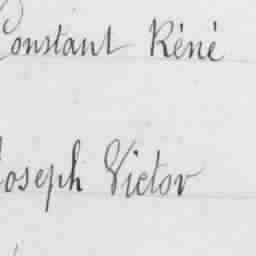 Constant Réné
Joseph Victor